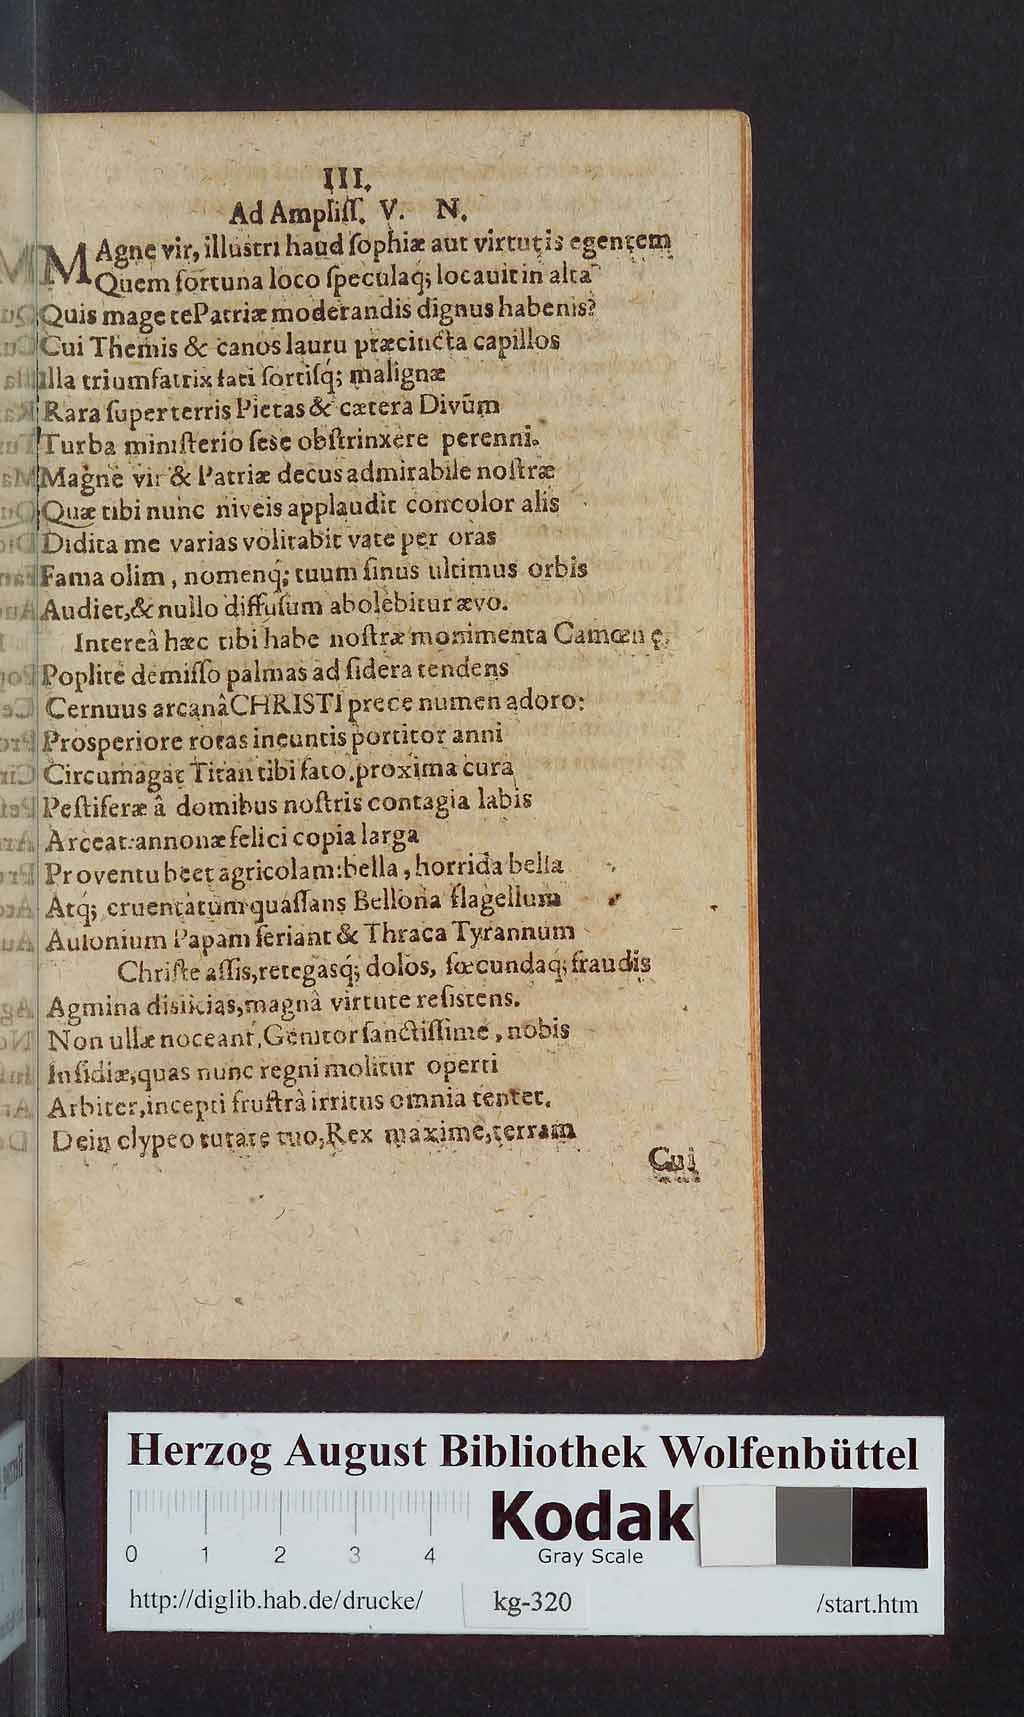 III.
Ad Ampliſſ. V. N.
MAgne vir, illustri haud ſophiæ aut virtutis egentem
Quem fortuna loco ſpeculaq; locauit in alta
Quis mage te Patriæ moderandis dignus habenis?
Cui Themis & canos lauru præcincta capillos
Illa triumfatrix fati ſortiſq́; malignæ
Rara ſuper terris Pietas & cætera Divûm
Turba miniſterio ſese obſtrinxere perenni.
Magne vir & Patriæ decus admirabile noſtræ
Quæ tibi nunc niveis applaudit concolor alis
Didita me varias volitabit vate per oras
Fama olim, nomenq́; tuum ſinus ultimus orbis
Audiet, & nullo diffuſum abolebitur ævo.
Intereà hæc tibi habe noſtræ monimenta Camœnę.
Poplite demiſſo palmas ad ſidera tendens
Cernuus arcanâ CHRISTI prece numen adoro:
Prosperiore rotas ineuntis portitor anni
Circumagat Titan tibi fato, proxima cura
Peſtiferæ â domibus noſtris contagia labis
Arceat: annonæ felici copia larga
Proventu beet agricolam: bella, horrida bella
Atq́; cruentatum quaſſans Bellona flagellum
Auſonium Papam feriant & Thraca Tyrannum
Chriſte aſſis, retegasq́; dolos, fœcundaq; fraudis
Agmina disiicias, magnâ virtute reſistens.
Non ullæ noceant, Genitor ſanctiſſime, nobis
Inſidiæ, quas nunc regni molitur operti
Arbiter, incepti fruſtrà irritus omnia tentet.
Dein clypeo tutare tuo, Rex maxime, terram
Cui
Herzog August Bibliothek Wolfenbüttel
0 1 2 3 4
Kodak
Gray Scale
http://diglib.hab.de/drucke/ kg-320 /start.htm